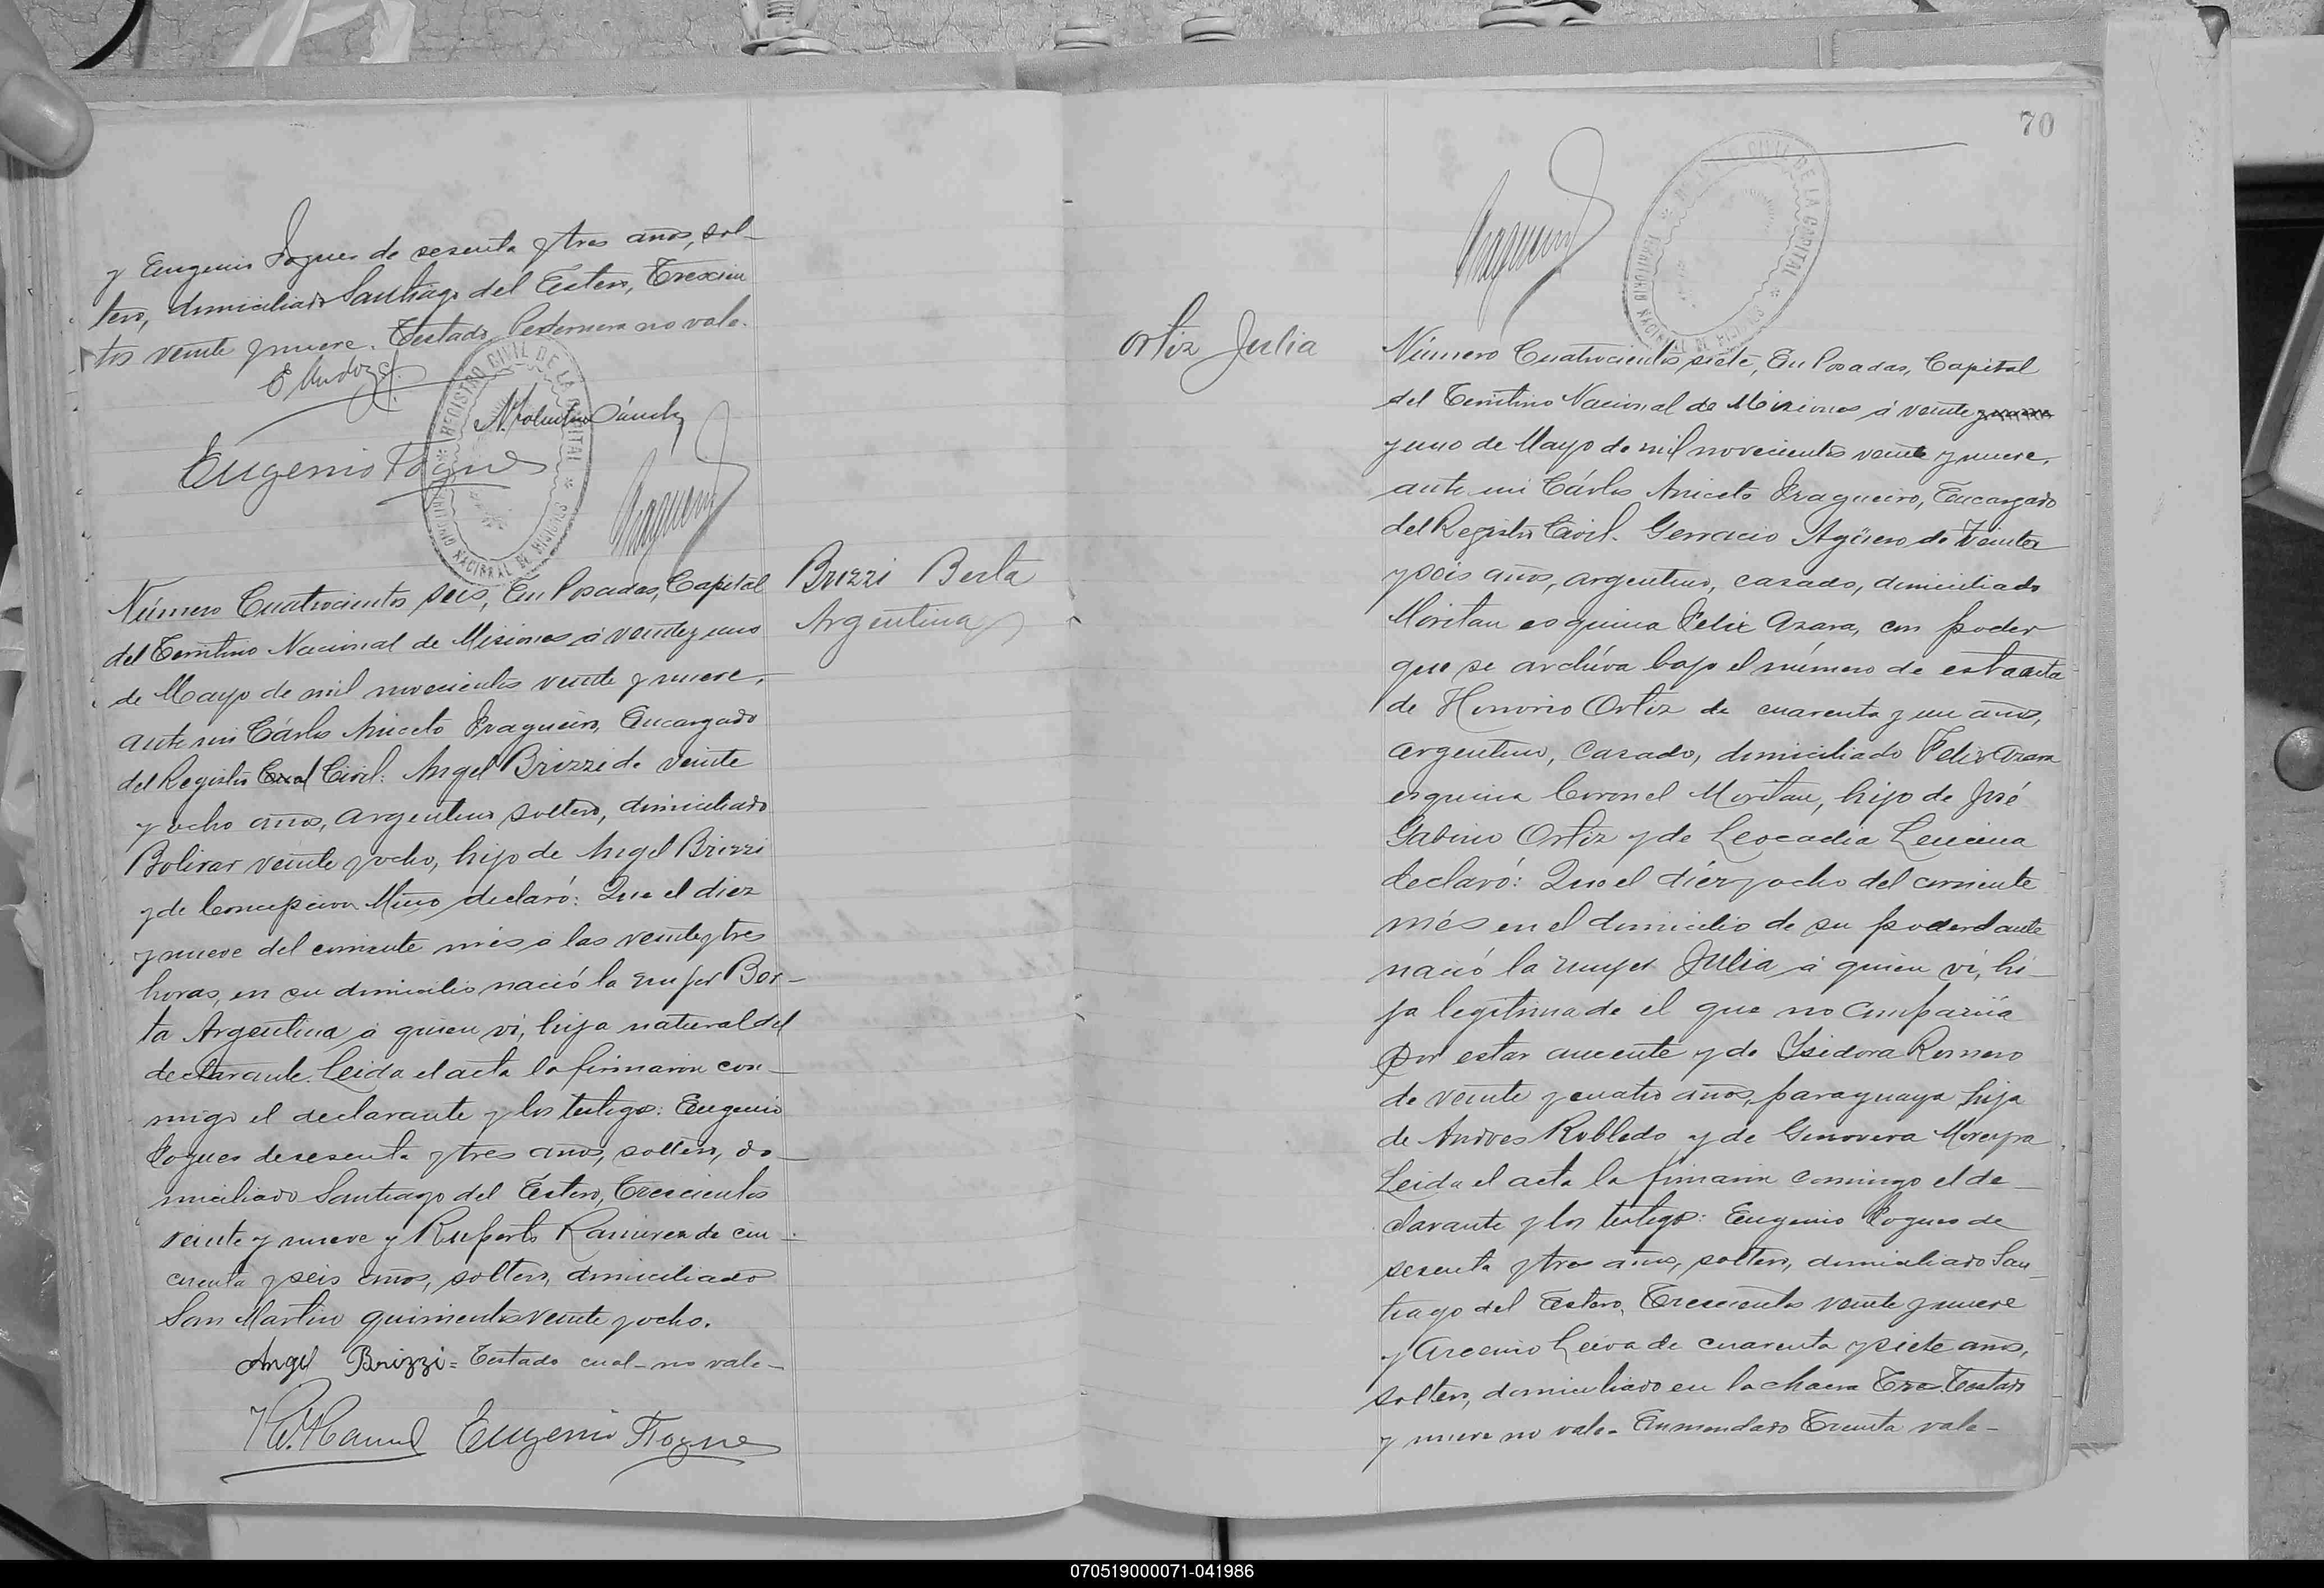 y Eugenio Fogues de sesenta y tres años, sol-
tero, domiciliado Santiago del Estero, Trescien
tos veinte y nueve. Testado, no vale.
Eugenio Fogues
Número Cuatrocientos seis, En Posadas, Capital
del Territino Nacional de Misiones á veinte y uno
de Mayo de mil novecientos veinte y nueve,
ante mi Cárlos Aniceto Fragueiro, Encargado
del Registro Civil: Angel Brizzi de veinte
y ocho años, argentino soltero, domiciliado
Bolivar veinte y ocho, hijo de Angel Brizzi
y de Concepcion Miño declaró: Que el diez
y nueve del corriente mes á las veinte y tres
horas, en su domicilio nació la mujer Ber-
ta Argentina á quien vi, hija natural del
declarante. Leida el acta la firmaron con-
migo el declarante y los testigos: Eugenio
Fogues de sesenta y tres años, soltero, do-
miciliado Santiago del Estero, Trescientos
veinte y nueve y Ruperto Ramirez de cin-
cuenta y seis años, soltero, domiciliado
San Martin quinientos veinte y ocho.
Angel Brizzi = Testado cual - no vale -
Eugenio Fogues
Brizzi Berta
Argentina
70
REGISTRO CIVIL DE LA CAPITAL
TERRITORIO NACIONAL DE MISIONES
Ortiz Julia
Número Cuatrocientos siete, En Posadas, Capital
del Territino Nacional de Misiones á veinte
y uno de Mayo de mil novecientos veinte y nueve,
ante mi Cárlos Aniceto Fragueiro, Encargado
del Registro Civil. Gervacio Agüero de Treinta
y seis años, argentino, casado, domiciliado
Moritan esquina Felix Azara, con poder
que se archiva bajo el número de esta acta
de Honorio Ortiz de cuarenta y un años,
argentino, casado, domiciliado Felix Azara
esquina Coronel Moritan, hijo de José
Gabino Ortiz y de Leocadia Lencina
declaró: Que el diez y ocho del corriente
més en el domicilio de su poderdante
nació la mujer Julia á quien vi, hi-
ja legitima de el que no comparecia
por estar ausente y de Isidora Romero
de veinte y cuatro años, paraguaya hija
de Andres Robledo y de Genoveva Moreyra
Leida el acta la firmaron conmigo el de-
clarante y los testigos: Eugenio Fogues de
sesenta y tres años, soltero, domiciliado San-
tiago del Estero, Trescientos veinte y nueve
y Arcenio Leiva de cuarenta y siete años,
soltero, domiciliado en la chacra Tres. Testado
y nueve no vale - Enmendado Treinta vale -